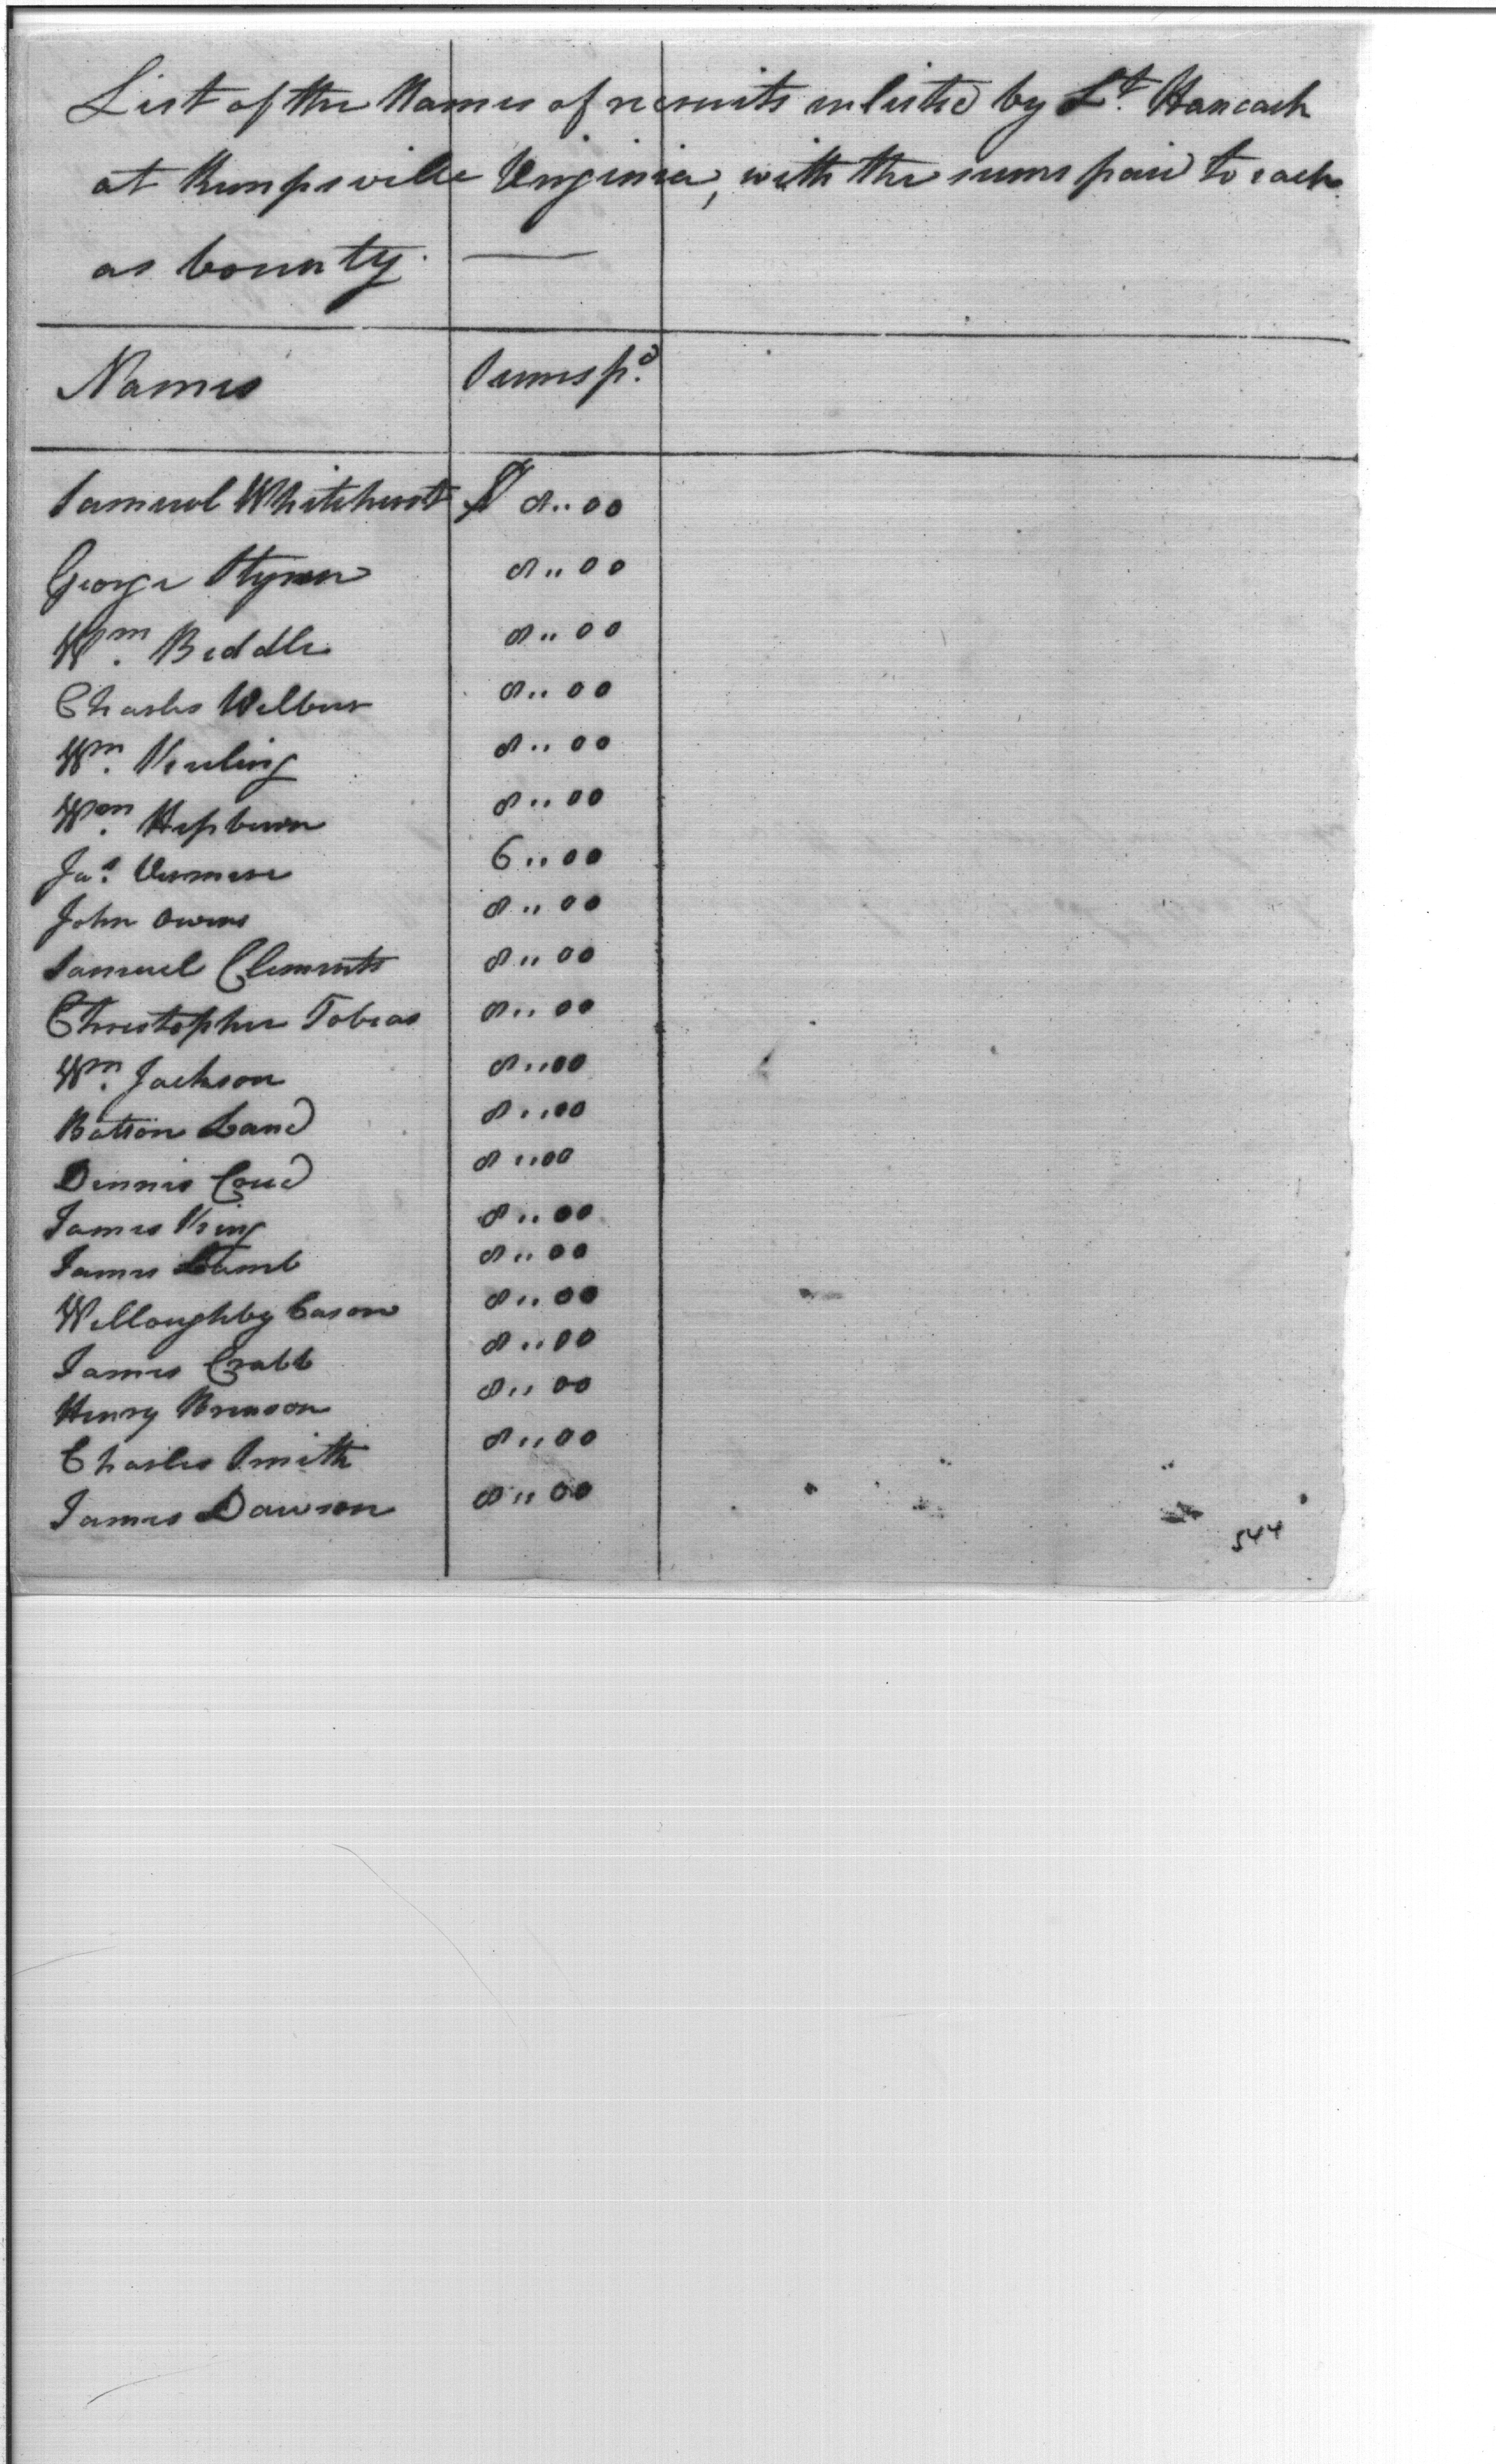 List of the Names of recruits enlisted by Lt. Hancock
at Kempsville Virginia, with the sums paid to each
as bounty.
Names Sums pd.
Samuel Whitehurst $ 8..00
George 8..00
Wm. Biddle 8..00
Charles Wilbur 8..00
Wm. 8..00
Wm. Hepburn 8..00
Jas. 6..00
John Owens 8..00
Samuel Clements 8..00
Christopher Tobias 8..00
Wm. Jackson 8..00
Batson Land 8..00
Dennis 8..00
James King 8..00
James Lamb 8..00
Willoughby Cason 8..00
James Crabb 8..00
Henry Brinson 8..00
Charles Smith 8..00
James Dawson 8..00
544